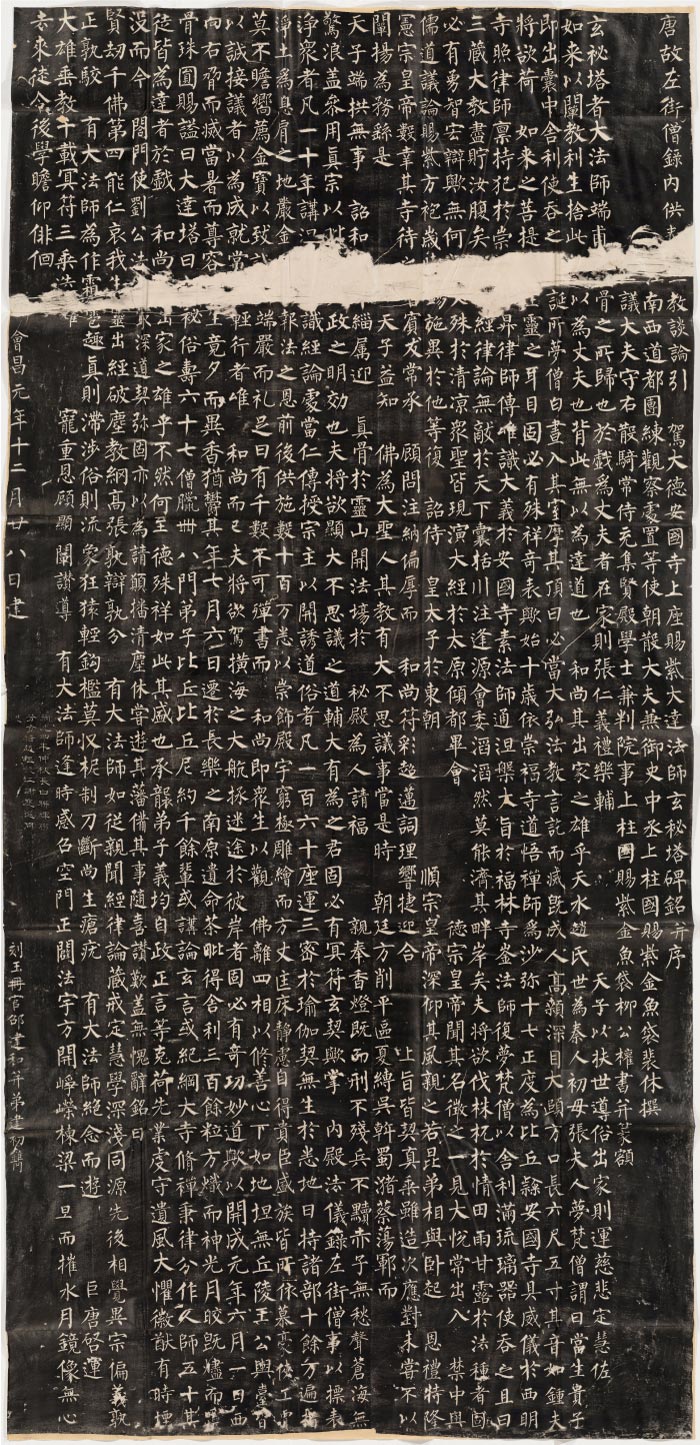 唐故左街僧錄內供 教談論引 駕大德安國寺上座賜紫大達法師玄秘塔碑銘并序
南西道都團練觀察處置等使朝散大夫兼御史中丞上柱國賜紫金魚袋裴休撰
議大夫守右散騎常侍充集賢殿學士兼判院事上柱國賜紫金魚袋柳公權書并篆額
玄秘塔者大法師端甫 骨之所歸也於戲為丈夫者在家則張仁義禮樂輔 天子以扶世導俗出家則運慈悲定慧佐
如來以闡教利生捨此 以為丈夫也背此無以為達道也 和尚其出家之雄乎天水趙氏世為秦人初母張夫人夢梵僧謂曰當生貴子
即出囊中舍利使吞之 誕所夢僧白晝入其室摩其頂曰必當大弘法教言訖而滅既成人高顙深目大頤方口長六尺五寸其音如鐘夫
將欲荷 如來之菩提 靈之耳目固必有殊祥奇表歟始十歲依崇福寺道悟禪師為沙弥十七正度為比丘隸安國寺具威儀於西明
寺照律師稟持犯於崇 昇律師傳唯識大義於安國寺素法師通涅槃大旨於福林寺崟法師復夢梵僧以舍利滿琉璃器使吞之且曰
三藏大教盡貯汝腹矣 經律論無敵於天下囊括川注逢源會委滔滔然莫能濟其畔岸矣夫將欲伐株杌於情田雨甘露於法種者固
必有勇智宏辯歟無何 殊於清涼眾聖皆現演大經於太原傾都畢會 德宗皇帝聞其名徵之一見大悅常出入 禁中與
儒道議論賜紫方袍歲 施異於他等復 詔侍 皇太子於東朝 順宗皇帝深仰其風親之若昆弟相與臥起 恩禮特隆
憲宗皇帝數幸其寺待之 賓友常承 顧問注納偏厚而 和尚符彩超邁詞理響捷迎合 上旨皆契真乘雖造次應對未嘗不以
闡揚為務繇是 天子益知 佛為大聖人其教有大不思議事當是時 朝廷方削平區夏縛吳斡蜀瀦蔡蕩鄆而
天子端拱無事 詔和 緇屬迎 真骨於靈山開法場於 秘殿為人請福 親奉香燈既而刑不殘兵不黷赤子無愁聲蒼海無
驚浪蓋參用真宗以 政之明效也夫將欲顯大不思議之道輔大有為之君固必有冥符玄契歟掌 內殿法儀錄左街僧事以標表
淨眾者凡一十年講涅 識經論處當仁傳授宗主以開誘道俗者凡一百六十座運三密於瑜伽契無生於悉地日持諸部十餘万遍指
淨土為息肩之地嚴金 報法之恩前後供施數十百万悉以崇飾殿宇窮極雕繪而方丈匡床靜慮自得貴臣盛族皆所依慕豪俠工賈
莫不瞻嚮薦金寶以致 端嚴而礼足日有千數不可殫書而 和尚即眾生以觀 佛離四相以修善心下如地坦無丘陵王公輿臺皆
以誠接議者以為成就常 輕行者唯 和尚而已夫將欲駕橫海之大航拯迷途於彼岸者固必有奇功妙道歟以開成元年六月一日西
向右脅而滅當暑而尊容 生竟夕而異香猶鬱其年七月六日遷於長樂之南原遺命荼毗得舍利三百餘粒方熾而神光月皎既燼而靈
骨珠圓賜謚曰大達塔曰 秘俗壽六十七僧臘卌八門弟子比丘比丘尼約千餘輩或講論玄言或紀綱大寺脩禪秉律分作人師五十其
徒皆為達者於戲 和尚 出家之雄乎不然何至德殊祥如此其盛也承襲弟子義均自政正言等克荷先業虔守遺風大懼徽猷有時堙
沒而今 閤門使劉公法 深道契弥固亦以為請願播清塵休嘗遊其藩備其事隨喜讚歎蓋無愧辭銘曰
賢劫千佛第四能仁哀我生 靈出經破塵教網高張孰辯孰分 有大法師如從親聞經律論藏戒定慧學深淺同源先後相覺異宗偏義孰
正孰駮 有大法師為作霜雹趣真則滯涉俗則流象狂猿輕鉤檻莫收柅制刀斷尚生瘡疣 有大法師絕念而遊 巨唐啓運
大雄垂教千載冥符三乘 耀 寵重恩顧顯闡讚導 有大法師逢時感召空門正闢法宇方開崢嶸棟梁一旦而摧水月鏡像無心
去來徒令後學瞻仰徘徊
會昌元年十二月廿八日建 刻玉冊官邵建和并弟建初鐫